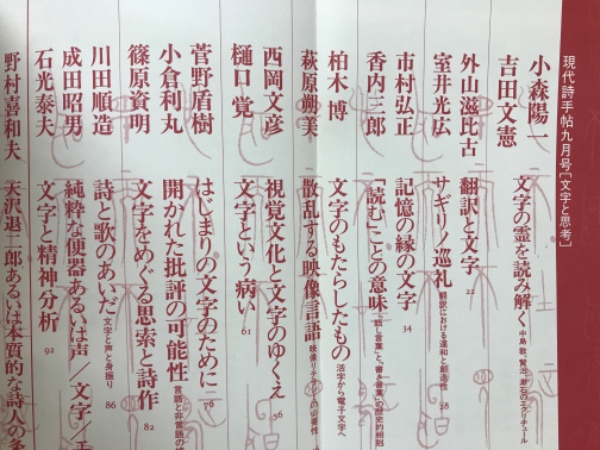 現代詩手帖九月号［文字と思考］
小森陽一
吉田文憲 文字の霊を読み解く 中島敦、賢治、漱石のエクリチュール
外山滋比古 翻訳と文字 22
室井光広 サギリノ巡礼 翻訳における違和と創造性 28
市村弘正 記憶の縁の文字 34
香内三郎 「読む」ことの意味 「話し言葉」と「書き言葉」の歴史的相剋
柏木博 文字のもたらしたもの 活字から電子文字へ
萩原朔美 散乱する映像言語 映像リテラシーの必要性
西岡文彦 視覚文化と文字のゆくえ 56
樋口覚 文字という病い 61
菅野盾樹 はじまりの文字のために 76
小倉利丸 開かれた批評の可能性 言語と非言語の
篠原資明 文字をめぐる思索と詩作 82
川田順造 詩と歌のあいだ 文字と声と身振り 86
成田昭男 純粋な便器あるいは声／文字／エ
石光泰夫 文字と精神分析 92
野村喜和夫 天沢退二郎あるいは本質的な詩人の条